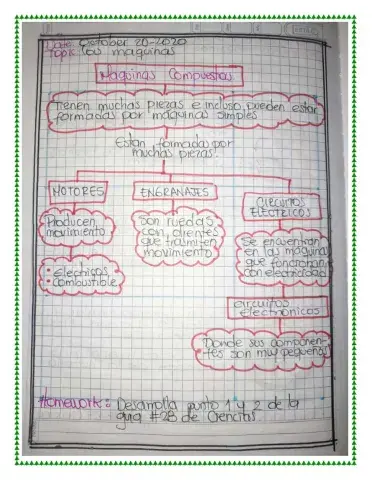 Date: October 20-2020
Topic: las maquinas
Maquinas Compuestas
Tienen muchas piezas e incluso, pueden estar
formadas por máquinas simples
Estan formadas por
muchas piezas.
MOTORES
Producen
movimiento
• Electricos
• Combustible
ENGRANAJES
Son ruedas
con dientes
que trasmiten
movimiento
CIRCUITOS
ELÉCTRICOS
Se encuentran
en las maquinas
que funcionan
con electricidad
circuitos
electronicos
Donde sus componen-
tes son muy pequeños
Homework: Desarrolla punto 1 y 2 de la
guia #28 de Ciencias